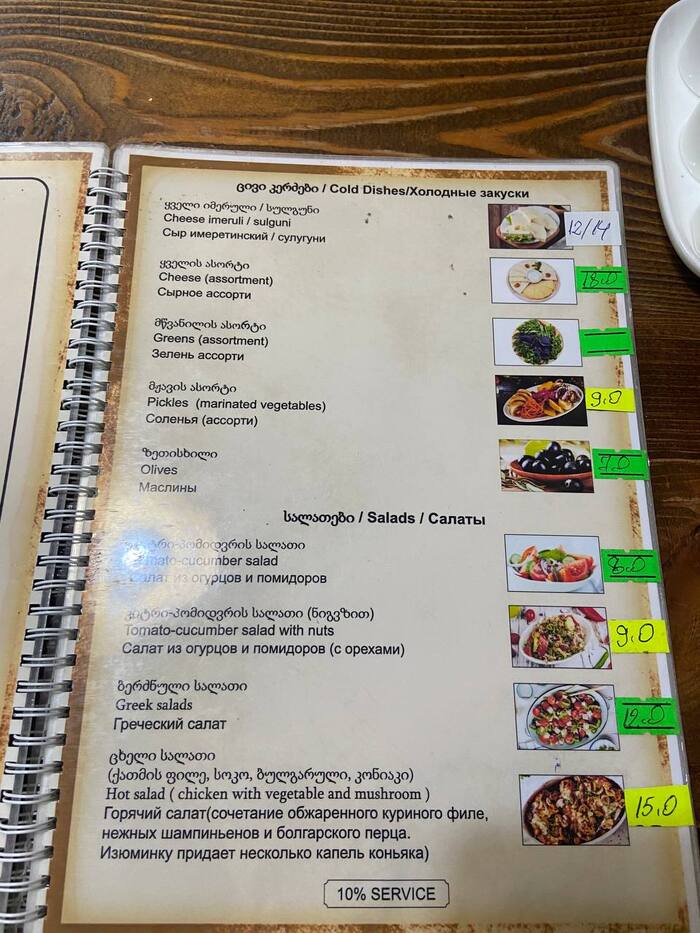 ცივი კერძები / Cold Dishes/Холодные закуски
ყველი იმერული / სულგუნი
Cheese imeruli / sulguni
Сыр имеретинский / сулугуни
12/14
ყველის ასორტი
Cheese (assortment)
Сырное ассорти
18.0
მწვანილის ასორტი
Greens (assortment)
Зелень ассорти
მჟავის ასორტი
Pickles (marinated vegetables)
Соленья (ассорти)
9.0
ზეთისხილი
Olives
Маслины
7.0
სალათები / Salads / Салаты
სალათი
salad
Салат из огурцов и помидоров
8.0
კიტრი-პომიდვრის სალათი (ნიგვზით)
Tomato-cucumber salad with nuts
Салат из огурцов и помидоров (с орехами)
9.0
ბერძნული სალათი
Greek salads
Греческий салат
12.0
ცხელი სალათი
(ქათმის ფილე, სოკო, ბულგარული, კონიაკი)
Hot salad ( chicken with vegetable and mushroom )
Горячий салат(сочетание обжаренного куриного филе,
нежных шампиньенов и болгарского перца.
Изюминку придает несколько капель коньяка)
15.0
10% SERVICE